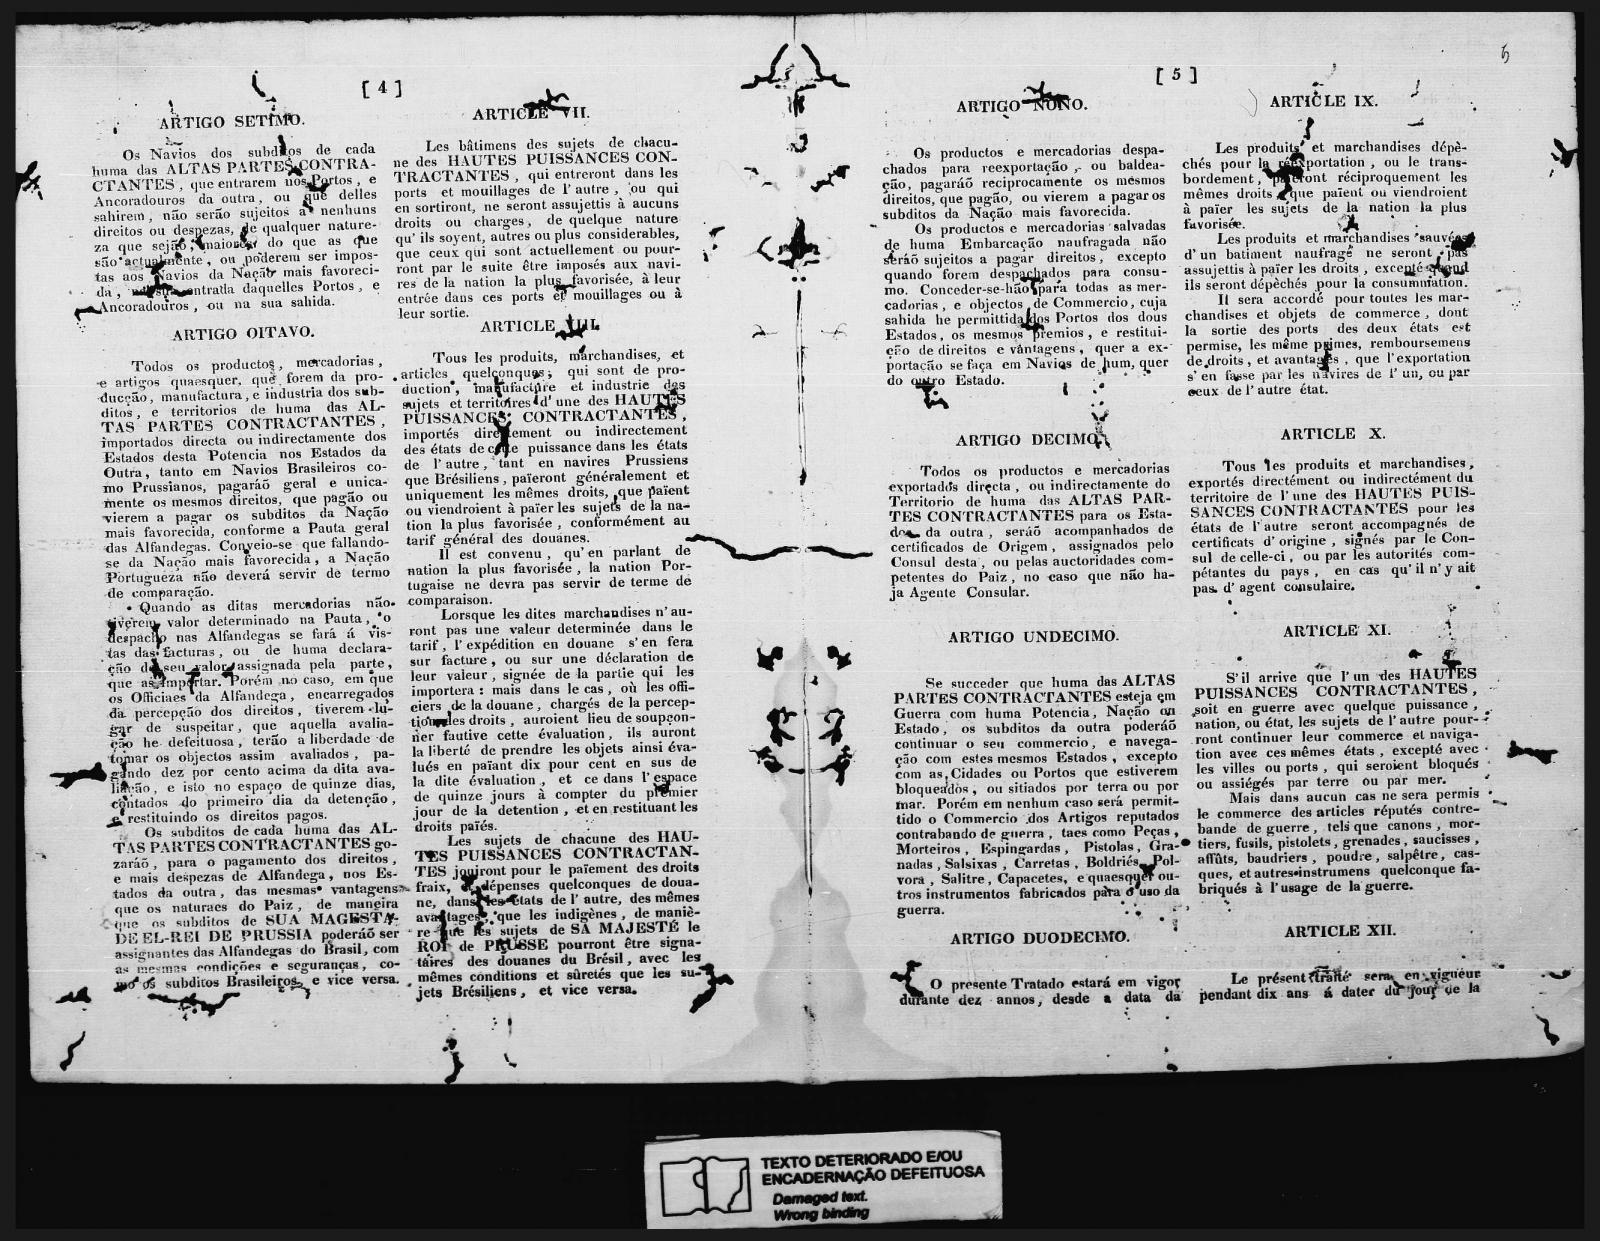 [ 4 ]
ARTIGO SETIMO.
Os Navios dos subditos de cada
huma das ALTAS PARTES CONTRA-
CTANTES , que entrarem nos Portos , e
Ancoradouros da outra, ou que delles
sahirem , não serão sujeitos a nenhuns
direitos ou despezas, de qualquer nature-
za que sejão, maiores do que as que
são actualmente , ou poderem ser impos-
tas aos Navios da Nação mais favoreci-
da , entrada daquelles Portos , e
Ancoradouros , ou na sua sahida.
ARTIGO OITAVO.
Todos os productos, mercadorias ,
e artigos quaesquer, que forem da pro-
ducção, manufactura, e industria dos sub-
ditos , e territorios de huma das AL-
TAS PARTES CONTRACTANTES ,
importados directa ou indirectamente dos
Estados desta Potencia nos Estados da
Outra , tanto em Navios Brasileiros co-
mo Prussianos, pagaráõ geral e unica-
mente os mesmos direitos, que pagão ou
vierem a pagar os subditos da Nação
mais favorecida, conforme a Pauta geral
das Alfandegas. Conveio-se que fallando-
se da Nação mais favorecida , a Nação
Portugueza não deverá servir de termo
de comparação.
Quando as ditas mercadorias não
tiverem valor determinado na Pauta , o
despacho nas Alfandegas se fará á vis-
tas das facturas, ou de huma declara-
ção do seu valor assignada pela parte,
que as importar. Porém no caso, em que
os Officiaes da Alfandega , encarregados
da percepção dos direitos , tiverem lu-
gar de suspeitar, que aquella avalia-
ção he defeituosa, terão a liberdade de
tomar os objectos assim avaliados , pa-
gando dez por cento acima da dita ava-
liação, e isto no espaço de quinze dias,
contados do primeiro dia da detenção ,
e restituindo os direitos pagos.
Os subditos de cada huma das AL-
TAS PARTES CONTRACTANTES go-
zaráõ, para o pagamento dos direitos ,
e mais despezas de Alfandega , nos Es-
tados da outra, das mesmas vantagens
que os naturaes do Paiz, de maneira
que os subditos de SUA MAGESTA-
DE EL-REI DE PRUSSIA poderáõ ser
assignantes das Alfandegas do Brasil, com
as mesmas condições e seguranças, co-
mo os subditos Brasileiros, e vice versa.
ARTICLE VII.
Les bâtimens des sujets de chacu-
ne des HAUTES PUISSANCES CON-
TRACTANTES , qui entreront dans les
ports et mouillages de l' autre , ou qui
en sortiront, ne seront assujettis à aucuns
droits ou charges , de quelque nature
qu' ils soyent, autres ou plus considerables,
que ceux qui sont actuellement ou pour-
ront par le suite être imposés aux navi-
res de la nation la plus favorisée, à leur
entrée dans ces ports et mouillages ou à
leur sortie.
ARTICLE VIII.
Tous les produits, marchandises, et
articles quelconques, qui sont de pro-
duction, manufacture et industrie des
sujets et territoires d' une des HAUTES
PUISSANCES CONTRACTANTES ,
importés directement ou indirectement
des états de cette puissance dans les états
de l' autre, tant en navires Prussiens
que Brésiliens , païeront généralement et
uniquement les mêmes droits, que païent
ou viendroient à païer les sujets de la na-
tion la plus favorisée , conformément au
tarif général des douanes.
Il est convenu , qu' en parlant de
nation la plus favorisée , la nation Por-
tugaise ne devra pas servir de terme de
comparaison.
Lorsque les dites marchandises n' au-
ront pas une valeur determinée dans le
tarif , l' expédition en douane s' en fera
sur facture , ou sur une déclaration de
leur valeur , signée de la partie qui les
importera : mais dans le cas , où les offi-
ciers de la douane , chargés de la percep-
tion des droits , auroient lieu de soupçon-
ner fautive cette évaluation , ils auront
la liberté de prendre les objets ainsi éva-
lués en païant dix pour cent en sus de
la dite évaluation , et ce dans l' espace
de quinze jours à compter du premier
jour de la detention , et en restituant les
droits païés.
Les sujets de chacune des HAU-
TES PUISSANCES CONTRACTAN-
TES jouiront pour le païement des droits
fraix, et dépenses quelconques de doua-
ne, dans les états de l' autre, des mêmes
avantages, que les indigènes , de maniè-
re que les sujets de SA MAJESTÉ le
ROI de PRUSSE pourront être signa-
taires des douanes du Brésil, avec les
mêmes conditions et sûretés que les su-
jets Brésiliens , et vice versa.
[ 5 ]
ARTIGO NONO.
Os productos e mercadorias despa-
chados para reexportação , ou baldea-
ção, pagaráõ reciprocamente os mesmos
direitos, que pagão, ou vierem a pagar os
subditos da Nação mais favorecida.
Os productos e mercadorias salvadas
de huma Embarcação naufragada não
seráõ sujeitos a pagar direitos, excepto
quando forem despachados para consu-
mo. Conceder-se-hão para todas as mer-
cadorias , e objectos de Commercio, cuja
sahida he permittida dos Portos dos dous
Estados, os mesmos premios , e restitui-
ção de direitos e vantagens , quer a ex-
portação se faça em Navios de hum, quer
do outro Estado.
ARTIGO DECIMO.
Todos os productos e mercadorias
exportados directa , ou indirectamente do
Territorio de huma das ALTAS PAR-
TES CONTRACTANTES para os Esta-
dos da outra , seráõ acompanhados de
certificados de Origem , assignados pelo
Consul desta, ou pelas auctoridades com-
petentes do Paiz, no caso que não ha-
ja Agente Consular.
ARTIGO UNDECIMO.
Se succeder que huma das ALTAS
PARTES CONTRACTANTES esteja em
Guerra com huma Potencia, Nação ou
Estado , os subditos da outra poderáõ
continuar o seu commercio , e navega-
ção com estes mesmos Estados , excepto
com as Cidades ou Portos que estiverem
bloqueados , ou sitiados por terra ou por
mar. Porém em nenhum caso será permit-
tido o Commercio dos Artigos reputados
contrabando de guerra , taes como Peças ,
Morteiros , Espingardas , Pistolas , Gra-
nadas , Salsixas , Carretas , Boldriés , Pol-
vora , Salitre , Capacetes, e quaesquer ou-
tros instrumentos fabricados para o uso da
guerra.
ARTIGO DUODECIMO.
O presente Tratado estará em vigor
durante dez annos, desde a data da
ARTICLE IX.
Les produits et marchandises dépê-
chés pour la réexportation , ou le trans-
bordement , païeront réciproquement les
mêmes droits , que païent ou viendroient
à païer les sujets de la nation la plus
favorisée.
Les produits et marchandises sauvées
d' un batiment naufragé ne seront pas
assujettis à païer les droits , excepté quand
ils seront dépêchés pour la consummation.
Il sera accordé pour toutes les mar-
chandises et objets de commerce , dont
la sortie des ports des deux états est
permise, les même primes, remboursemens
de droits , et avantages , que l'exportation
s' en fasse par les navires de l' un, ou par
ceux de l' autre état.
ARTICLE X.
Tous les produits et marchandises,
exportés directément ou indirectément du
territoire de l' une des HAUTES PUIS-
SANCES CONTRACTANTES pour les
états de l' autre seront accompagnés de
certificats d' origine , signés par le Con-
sul de celle-ci , ou par les autorités com-
pétantes du pays , en cas qu' il n' y ait
pas d' agent consulaire.
ARTICLE XI.
S' il arrive que l' un des HAUTES
PUISSANCES CONTRACTANTES ,
soit en guerre avec quelque puissance ,
nation, ou état, les sujets de l' autre pour-
ront continuer leur commerce et naviga-
tion avec ces mêmes états , excepté avec
les villes ou ports , qui seroient bloqués
ou assiégés par terre ou par mer.
Mais dans aucun cas ne sera permis
le commerce des articles réputés contre-
bande de guerre , tels que canons , mor-
tiers, fusils, pistolets, grenades, saucisses ,
affûts, baudriers , poudre, salpêtre, cas-
ques, et autres instrumens quelconque fa-
briqués à l' usage de la guerre.
ARTICLE XII.
Le présent traité sera en vigueur
pendant dix ans á dater du jour de la
TEXTO DETERIORADO E/OU
ENCADERNAÇÃO DEFEITUOSA
Damaged text.
Wrong binding